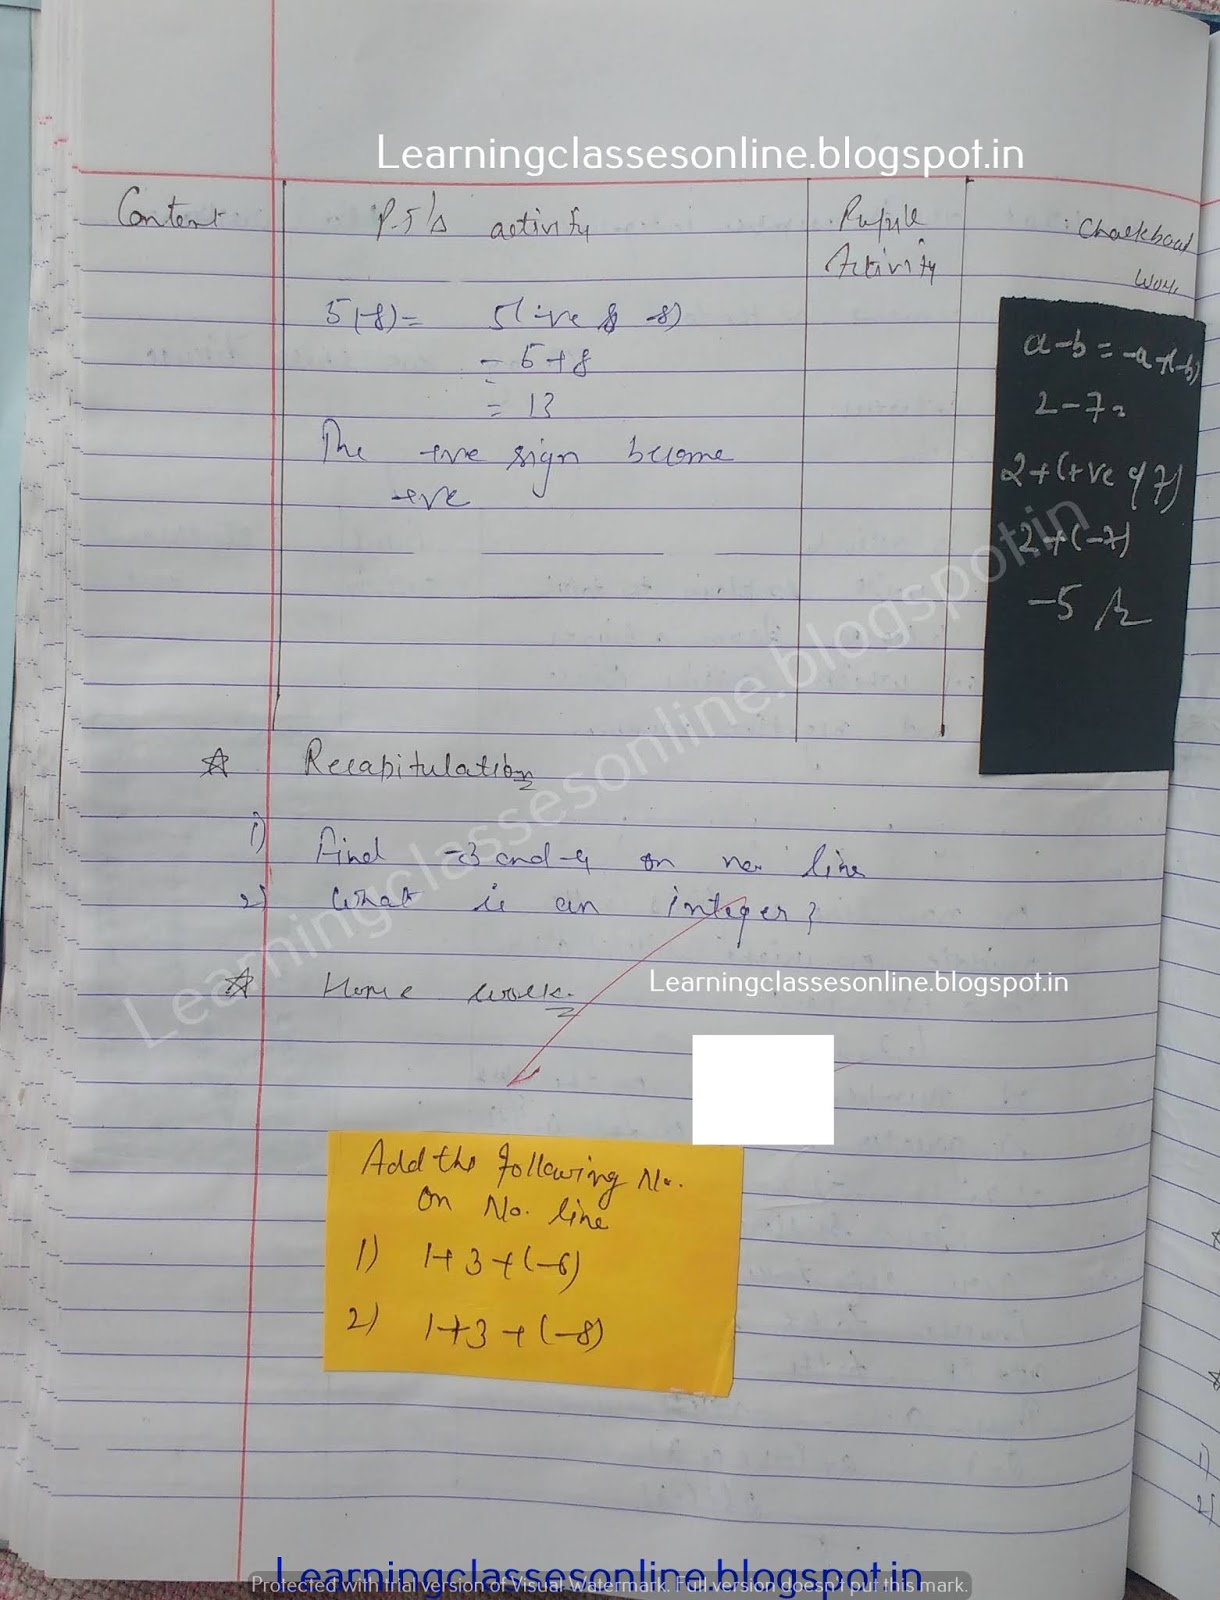 Learningclassesonline.blogspot.in
Content
P.T's activity
Pupil Activity
Chalkboard
Work
5(-8) = 5(-ve of -8)
= 5+8
= 13
The -ve sign become
+ve
a-b = -a+(-b)
2-7=
2+(+ve of 7)
2+(-7)
-5
Recapitulation
1) Find -3 and -4 on no. line
2) What is an integer?
Learningclassesonline.blogspot.in
Home work.
Learningclassesonline.blogspot.in
Add the following No.
on No. line
1) 1+3+(-6)
2) 1+3+(-8)
1)
2)
Learningclassesonline.blogspot.in
Protected with trial version of Visual Watermark. Full version doesn't put this mark.